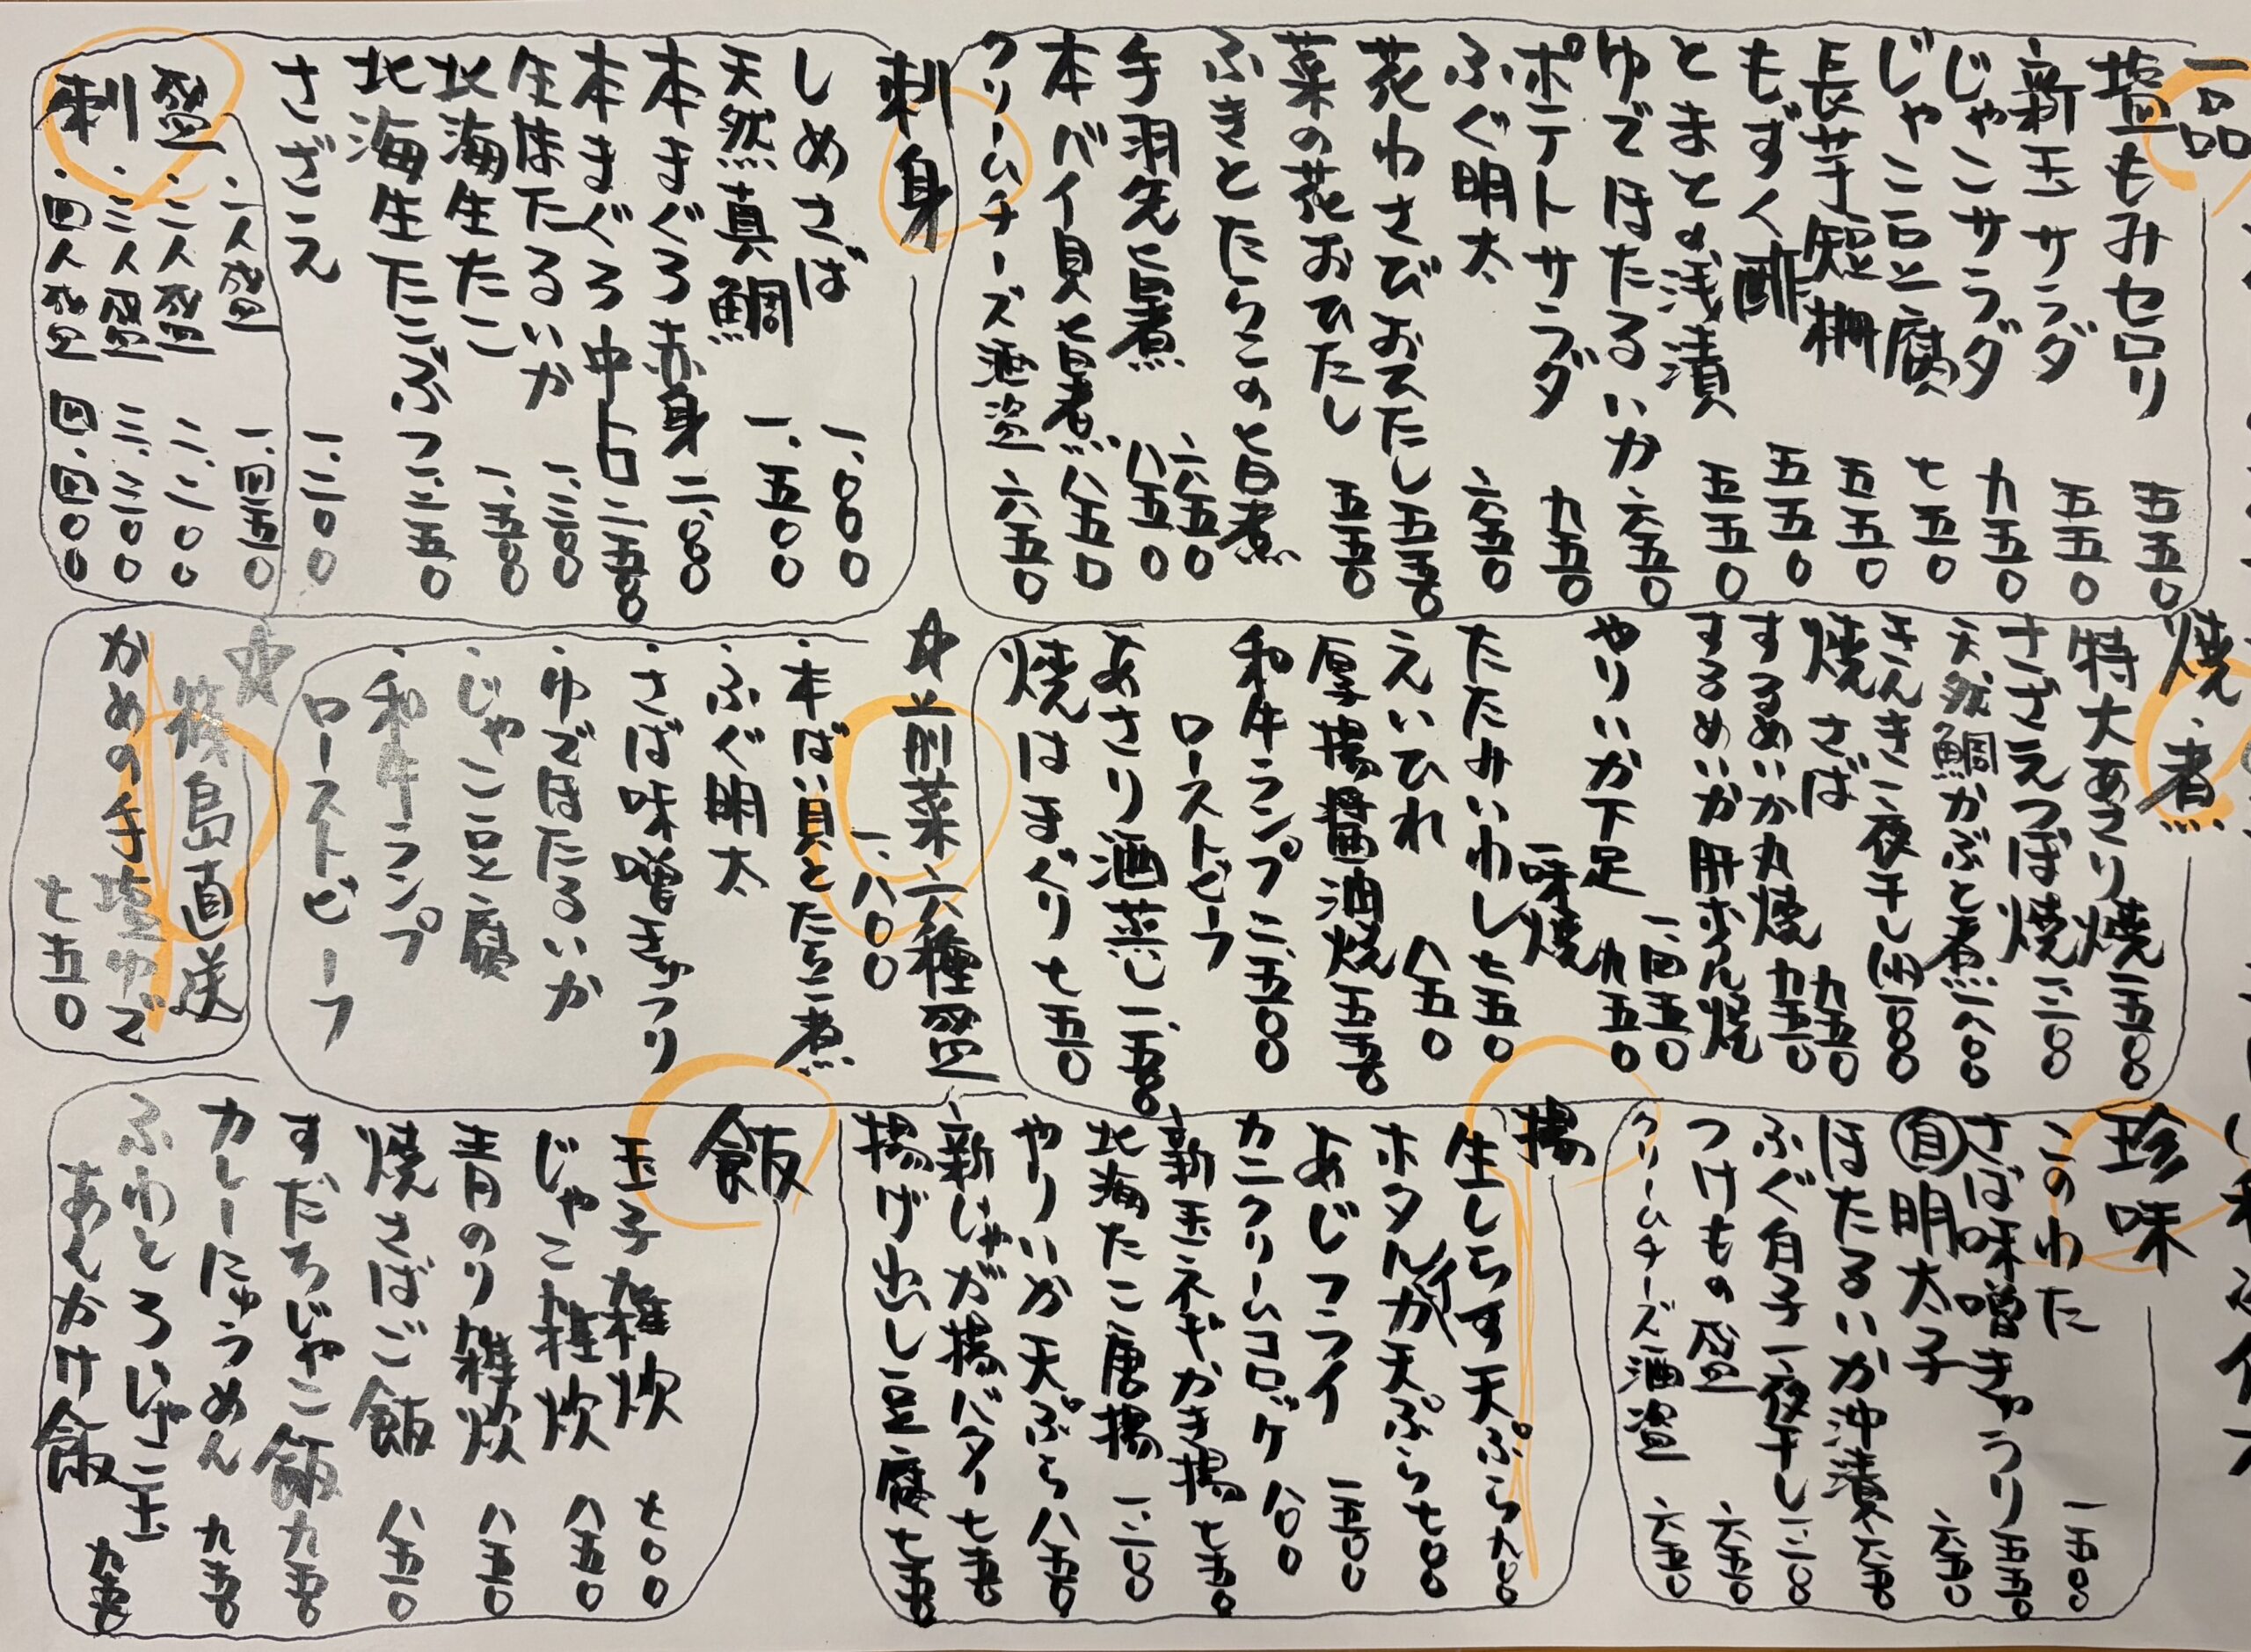 一品
塩もみセロリ 五五〇
新玉サラダ 五五〇
じゃこサラダ 九五〇
じゃこ豆腐 七五〇
長芋短冊 五五〇
もずく酢 五五〇
とまとの浅漬 五五〇
ゆでほたるいか 六五〇
ポテトサラダ 九五〇
ふぐ明太 六五〇
花わさびおひたし 五五〇
菜の花おひたし 五五〇
ふきとたらこの旨煮 六五〇
手羽先旨煮 八五〇
本バイ貝旨煮 八五〇
クリームチーズ酒盗 六五〇
刺身
しめさば 一、〇〇〇
天然真鯛 一、五〇〇
本まぐろ赤身 二、〇〇〇
本まぐろ中トロ 二、五〇〇
生ほたるいか 一、二〇〇
北海生たこ 一、五〇〇
北海生たこぶつ 一、二五〇
さざえ 一、二〇〇
刺盛
・一人盛 一、四五〇
・二人盛 二、二〇〇
・三人盛 三、三〇〇
・四人盛 四、四〇〇
焼・煮
特大あさり焼 一、五〇〇
さざえつぼ焼 一、二〇〇
天然鯛かぶと煮 一、八〇〇
きんき一夜干し 四、〇〇〇
焼さば 九五〇
するめいか丸焼 九五〇
するめいか肝ホイル焼 一、四五〇
やりいか下足一味焼 九五〇
たたみいわし 七五〇
えいひれ 八五〇
厚揚醤油焼 五五〇
和牛ランプローストビーフ 二、五〇〇
あさり酒蒸し 一、五〇〇
焼はまぐり 七五〇
☆前菜六種盛
一、八〇〇
・本ばい貝とたらこ煮
・ふぐ明太
・さば味噌きゅうり
・ゆでほたるいか
・じゃこ豆腐
・和牛ランプ
ローストビーフ
☆篠島直送
かめの手塩ゆで
七五〇
珍味
このわた 一、五〇〇
さば味噌きゅうり 五五〇
自明太子 六五〇
ほたるいか沖漬 六五〇
ふぐ白子一夜干し 一、二〇〇
つけもの盛 六五〇
クリームチーズ酒盗 六五〇
揚
生しらす天ぷら 九〇〇
ホタルイカ天ぷら 七〇〇
あじフライ 一、五〇〇
カニクリームコロッケ 八〇〇
新玉ネギかき揚 七五〇
北海たこ唐揚 一、二〇〇
やりいか天ぷら 八五〇
新じゃが揚バター 七五〇
揚げ出し豆腐 七五〇
飯
玉子雑炊 七〇〇
じゃこ雑炊 八五〇
青のり雑炊 八五〇
焼さばご飯 八五〇
すだちじゃこ飯 九五〇
カレーにゅうめん 九五〇
ふわとろじゃこ玉
あんかけ飯 九五〇